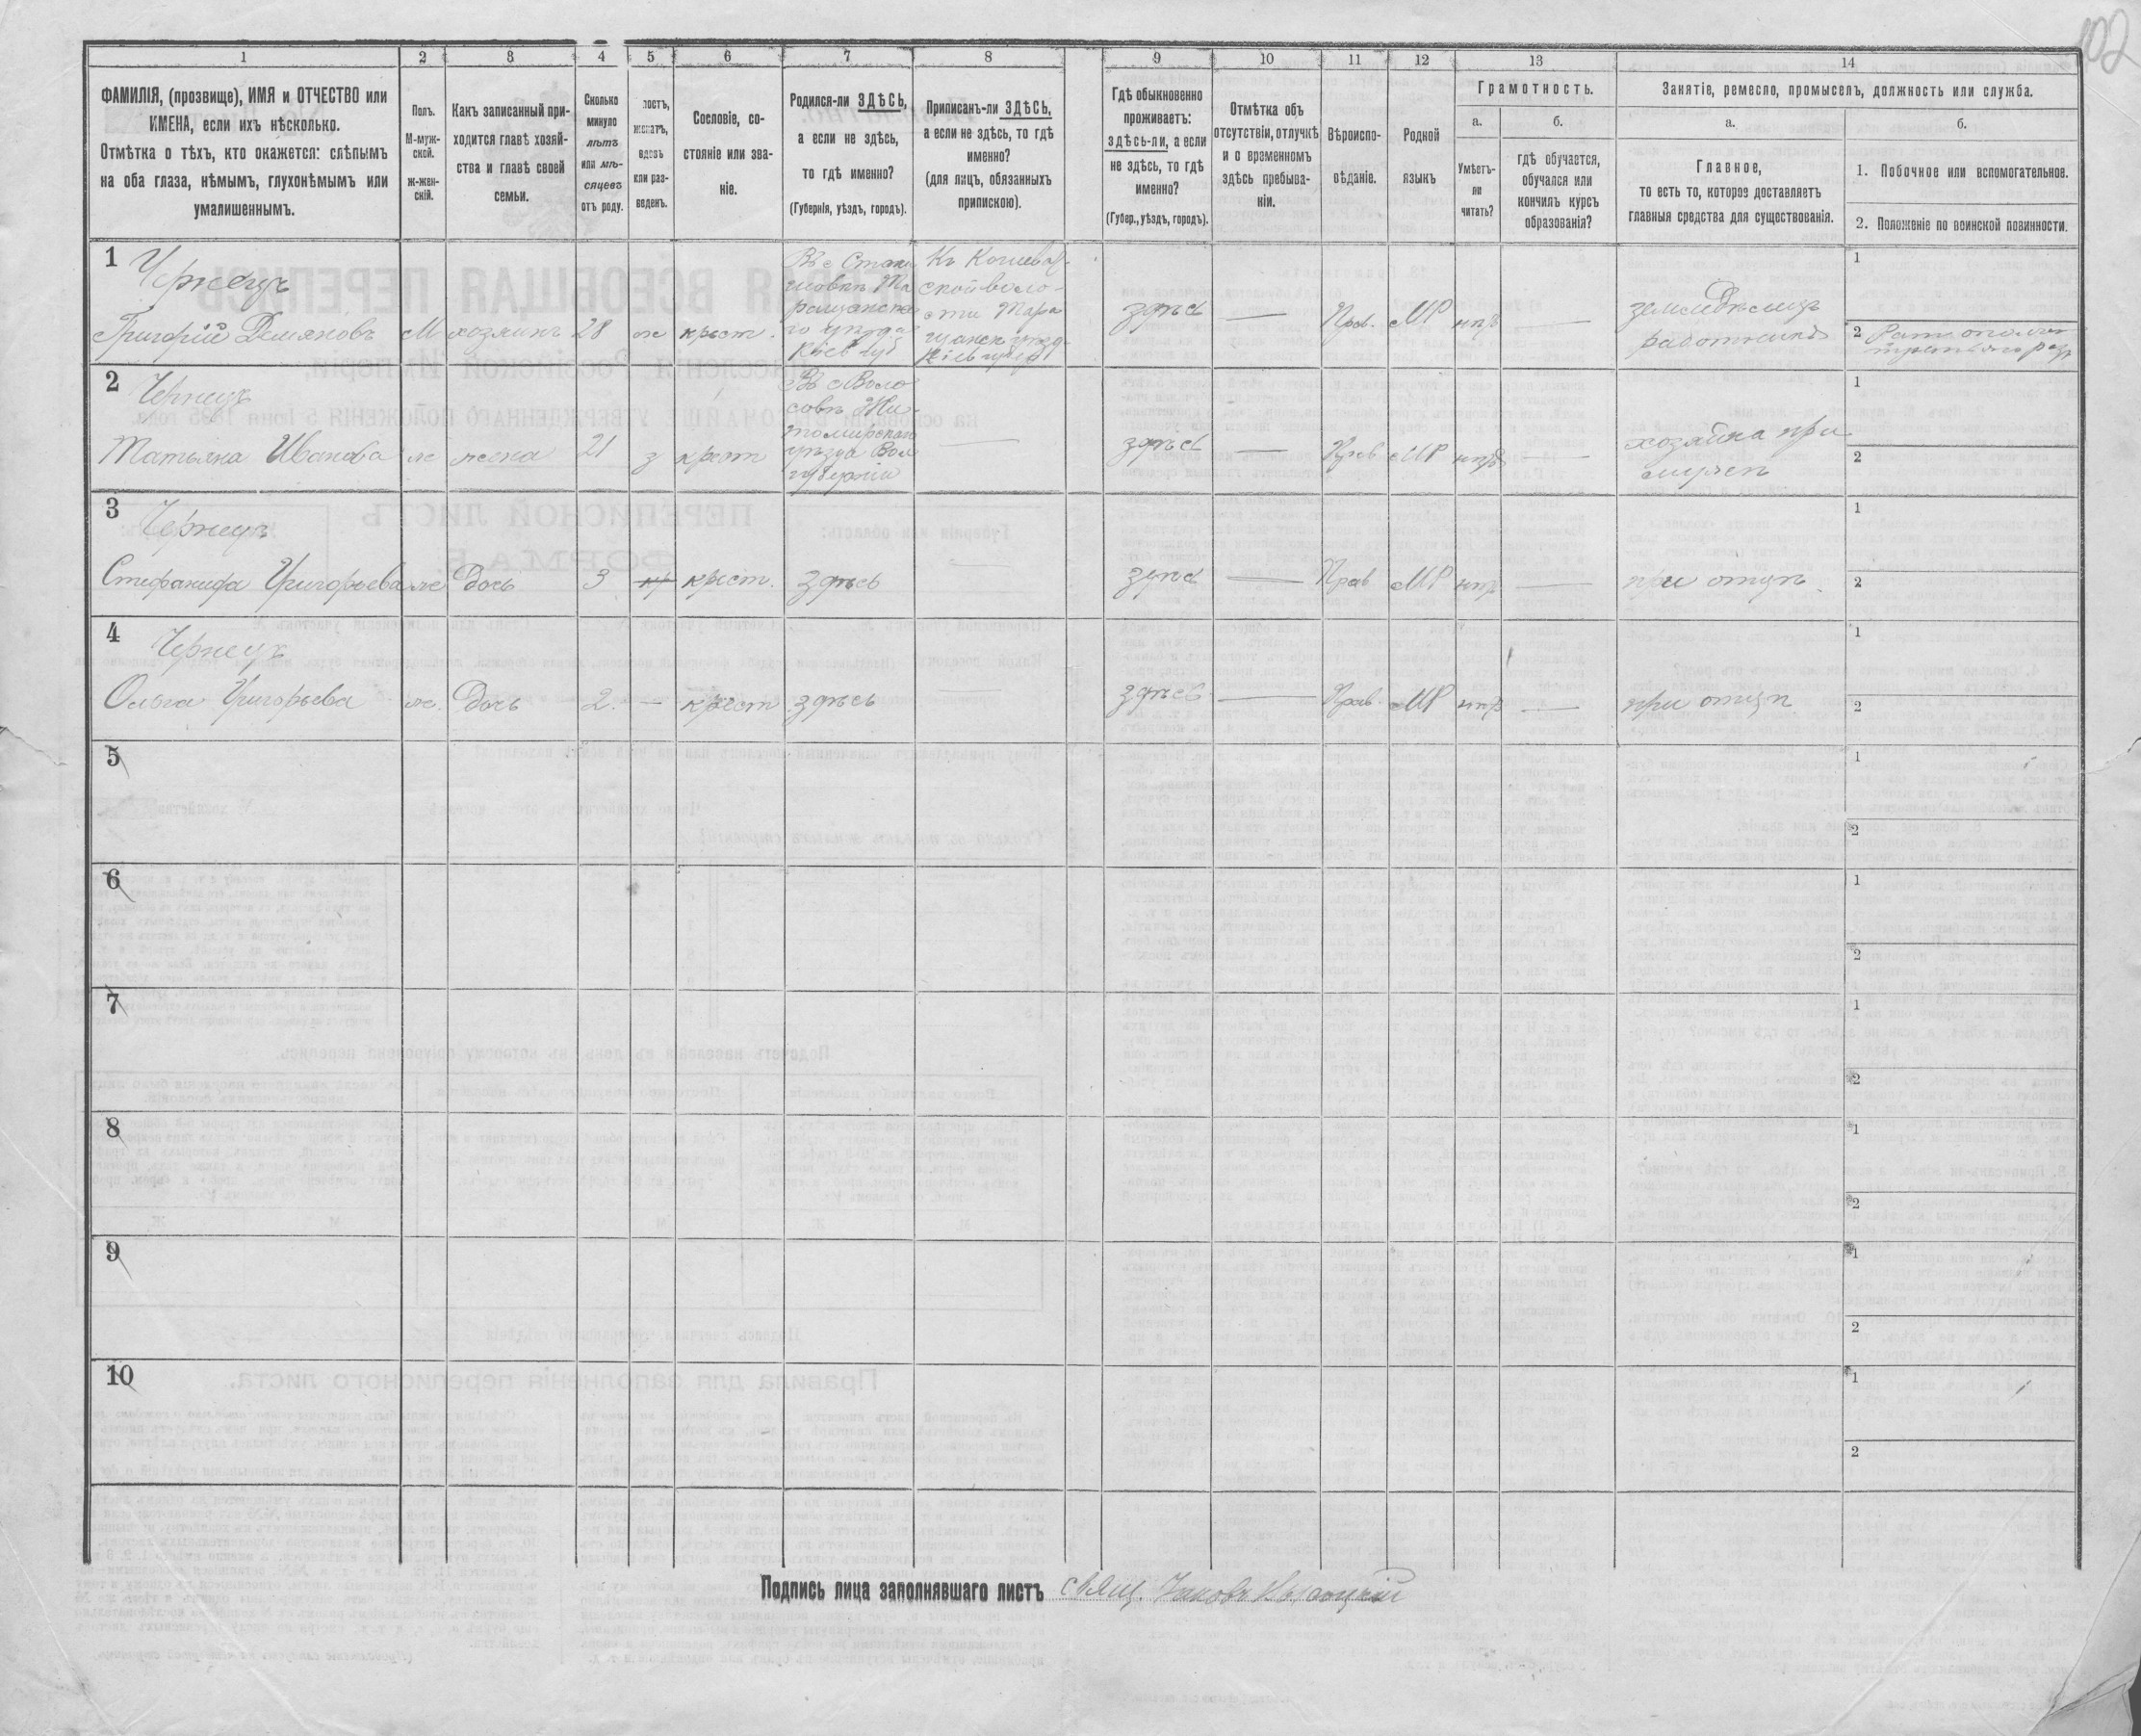 102
1 2 3 4 5 6 7 8 9 10 11 12 13 14
ФАМИЛІЯ, (прозвище), ИМЯ и ОТЧЕСТВО или
ИМЕНА, если ихъ нѣсколько.
Отмѣтка о тѣхъ, кто окажется: слѣпымъ
на оба глаза, нѣмымъ, глухонѣмымъ или
умалишеннымъ.
Полъ.
М-муж-
ской.
Ж-жен-
скій.
Какъ записанный при-
ходится главѣ хозяй-
ства и главѣ своей
семьи.
Сколько
минуло
лѣтъ
или мѣ-
сяцевъ
отъ роду.
лостъ,
женатъ,
вдовъ
или раз-
веденъ.
Сословіе, со-
стояніе или зва-
ніе.
Родился-ли ЗДѢСЬ,
а если не здѣсь,
то гдѣ именно?
(Губернія, уѣздъ, городъ).
Приписанъ-ли ЗДѢСЬ,
а если не здѣсь, то гдѣ
именно?
(для лицъ, обязанныхъ
припискою).
Гдѣ обыкновенно
проживаетъ:
здѣсь-ли, а если
не здѣсь, то гдѣ
именно?
(Губер., уѣздъ, городъ).
Отмѣтка объ
отсутствіи, отлучкѣ
и о временномъ
здѣсь пребыва-
ніи.
Вѣроиспо-
вѣданіе.
Родной
языкъ
Грамотность.
а.
Умѣетъ-
ли
читать?
б.
гдѣ обучается,
обучался или
кончилъ курсъ
образованія?
Занятіе, ремесло, промыселъ, должность или служба.
а.
Главное,
то есть то, которое доставляетъ
главныя средства для существованія.
б.
1. Побочное или вспомогательное.
2. Положеніе по воинской повинности.
1 Чернецъ
Григорій Демяновъ М хозяинъ 28 ж крест.
Въ с Стани
шовкѣ Та
ращанска
го уѣзда
Кіев губ
Къ Кошева
ской воло-
сти Тара
щанск уѣзд
Кіев губер
здѣсь — Прав. МР нѣтъ —
земледѣлецъ
работникъ
1
2 Рат ополч
2 Чернецъ
Татьяна Иванова ж жена 21 з крест
Въ с Воло
совѣ Жи-
томирскаго
уѣзда Вол
губерніи
— здѣсь — Прав МР нѣтъ —
хозяйка при
мужѣ
1
2
3 Чернецъ
Стефанида Григорьева ж Дочь 3 крест. здѣсь — здѣсь — Прав МР нѣтъ — при отцѣ
1
2
4 Чернецъ
Ольга Григорьева ж. Дочь 2. — крест здѣсь — здѣсь — Прав. МР нѣтъ — при отцѣ
1
2
5
1
2
6
1
2
7
1
2
8
1
2
9
1
2
10
1
2
Подпись лица заполнявшаго листъ свящ. Іаковъ Высоцкій